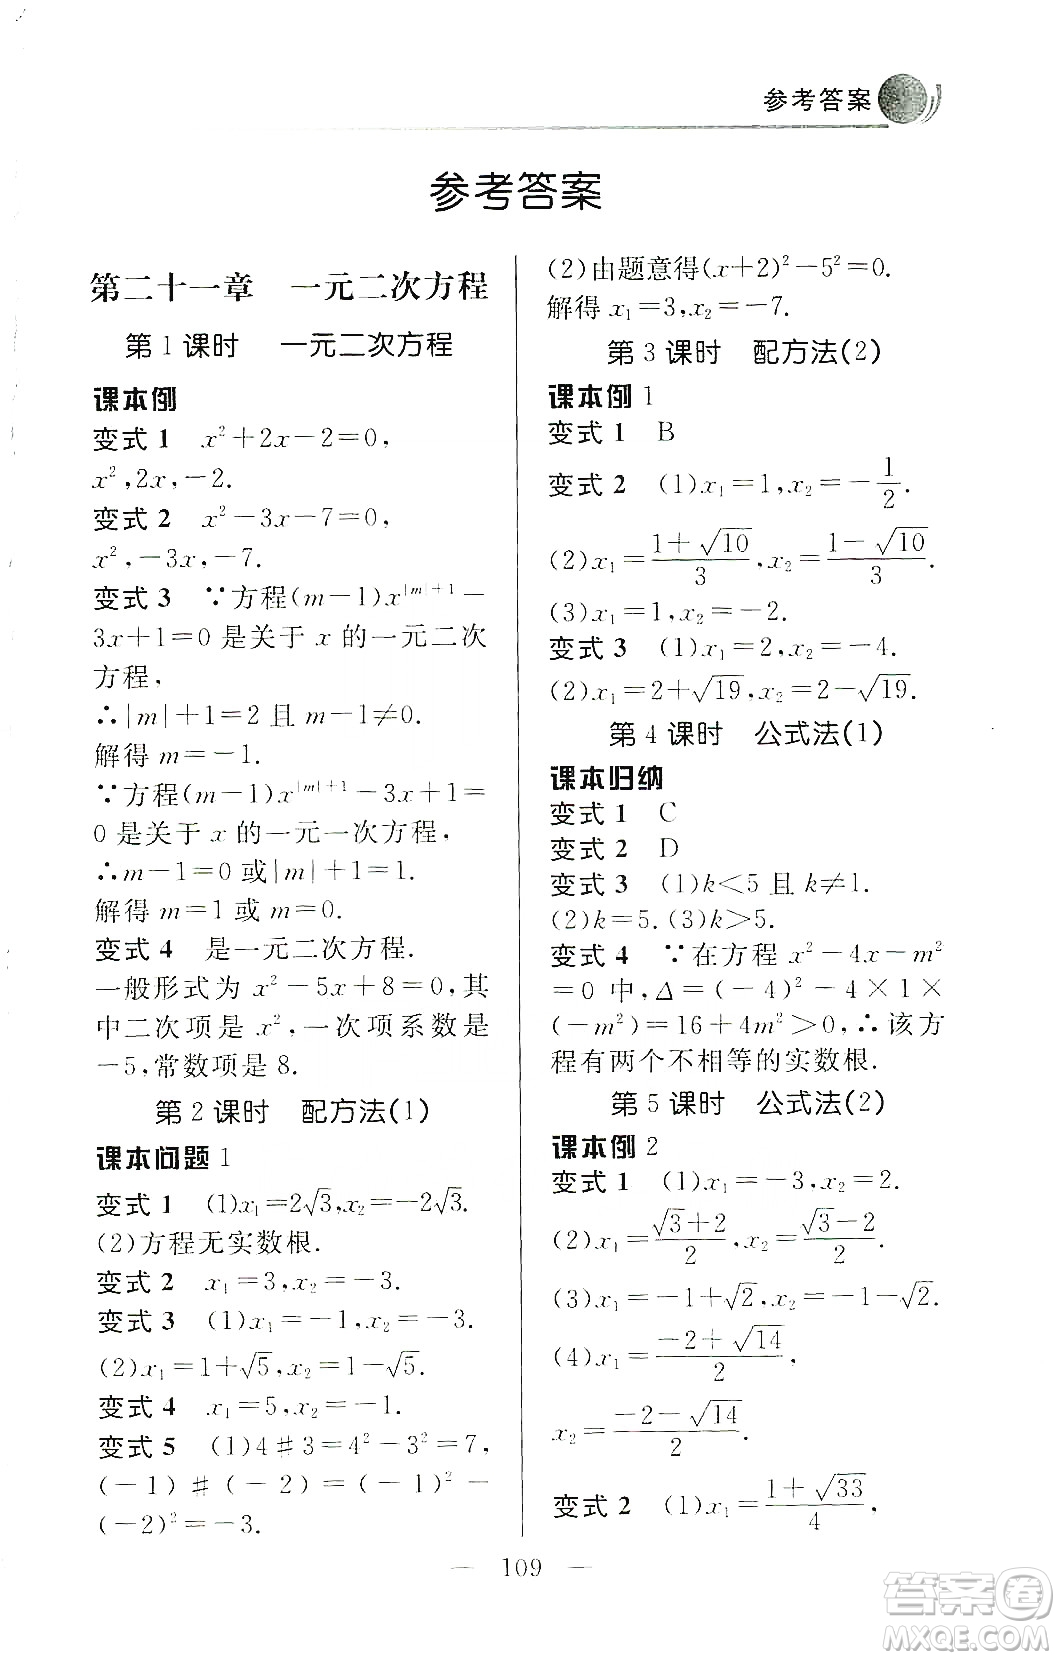 参考答案
参考答案
第二十一章 一元二次方程
第1课时 一元二次方程
课本例
变式1 x²+2x-2=0,
x²,2x,-2.
变式2 x²-3x-7=0,
x²,-3x,-7.
变式3 ∵方程(m-1)x^{|m|+1}-
3x+1=0是关于x的一元二次
方程,
∴|m|+1=2且m-1≠0.
解得m=-1.
∵方程(m-1)x^{|m|+1}-3x+1=
0是关于x的一元一次方程,
∴m-1=0或|m|+1=1.
解得m=1或m=0.
变式4 是一元二次方程.
一般形式为x²-5x+8=0,其
中二次项是x²,一次项系数是
-5,常数项是8.
第2课时 配方法(1)
课本问题1
变式1 (1)x₁=2√3,x₂=-2√3.
(2)方程无实数根.
变式2 x₁=3,x₂=-3.
变式3 (1)x₁=-1,x₂=-3.
(2)x₁=1+√5,x₂=1-√5.
变式4 x₁=5,x₂=-1.
变式5 (1)4♯3=4²-3²=7,
(-1)♯(-2)=(-1)²-
(-2)²=-3.
(2)由题意得(x+2)²-5²=0.
解得x₁=3,x₂=-7.
第3课时 配方法(2)
课本例1
变式1 B
变式2 (1)x₁=1,x₂=-1/2.
(2)x₁=(1+√10)/3,x₂=(1-√10)/3.
(3)x₁=1,x₂=-2.
变式3 (1)x₁=2,x₂=-4.
(2)x₁=2+√19,x₂=2-√19.
第4课时 公式法(1)
课本归纳
变式1 C
变式2 D
变式3 (1)k<5且k≠1.
(2)k=5.(3)k>5.
变式4 ∵在方程x²-4x-m²
=0中,Δ=(-4)²-4×1×
(-m²)=16+4m²>0,∴该方
程有两个不相等的实数根.
第5课时 公式法(2)
课本例2
变式1 (1)x₁=-3,x₂=2.
(2)x₁=(√3+2)/2,x₂=(√3-2)/2.
(3)x₁=-1+√2,x₂=-1-√2.
(4)x₁=(-2+√14)/2,
x₂=(-2-√14)/2.
变式2 (1)x₁=(1+√33)/4,
— 109 —
答案圈
MXQE.COM